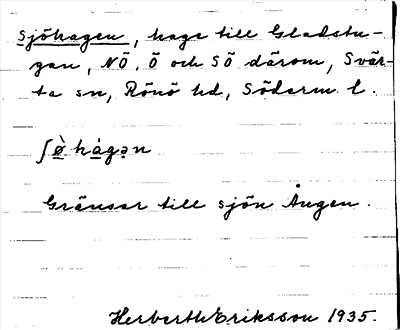 Sjöhagen, hage till Gladstu-
gan, NÖ, Ö och SÖ därom, Svär-
ta sn, Rönö hd, Söderm. l.
ʃø̀hágən
Gränsar till sjön Ången.
Herberth Eriksson 1935.